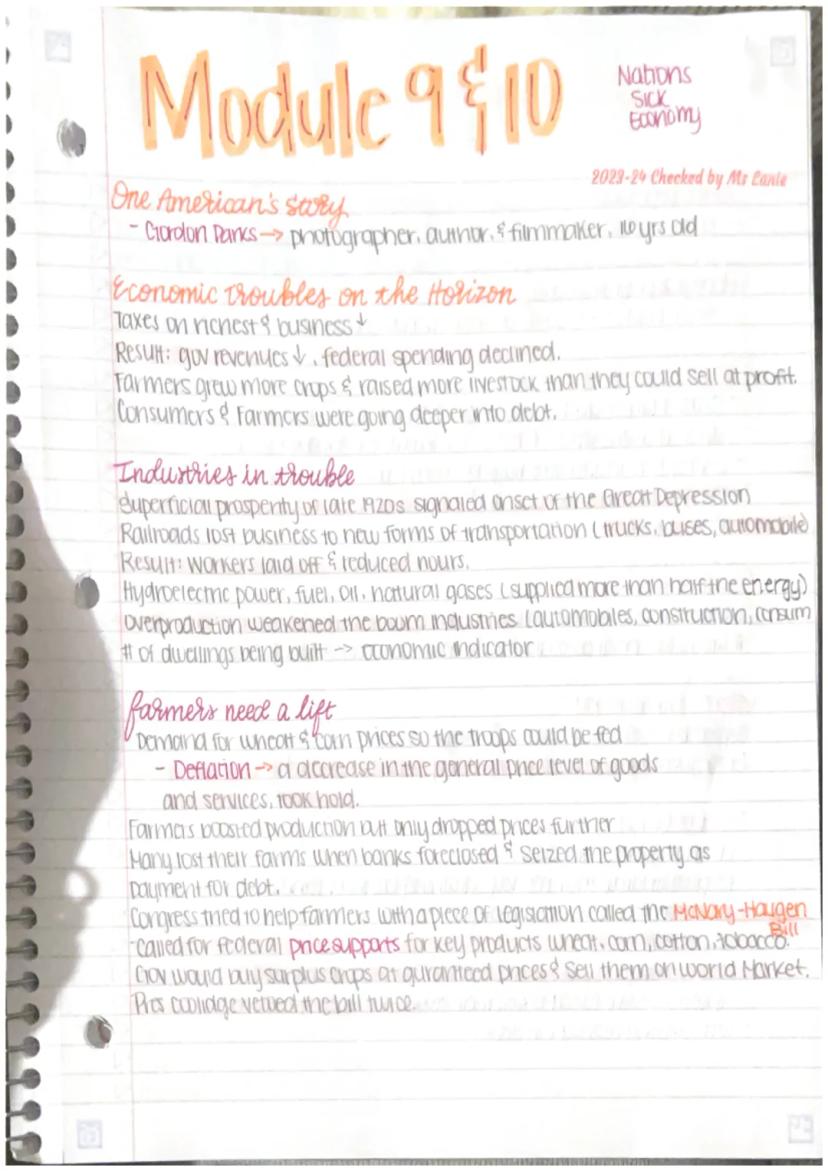 Module 9 & 10
Nations
Sick
Economy
2023-24 Checked by Ms Lanie
One American's story
- Gordon Parks → photographer, author, & filmmaker, 16 yrs old
Economic troubles on the Horizon
Taxes on richest & business ↓
Result: gov revenues ↓, federal spending declined.
Farmers grew more crops & raised more livestock than they could sell at profit.
Consumers & Farmers were going deeper into debt.
Industries in trouble
Superficial prosperity of late 1920s signaled onset of the Great Depression
Railroads lost business to new forms of transportation (trucks, buses, automobile)
Result: Workers laid off & reduced hours.
Hydroelectric power, fuel, oil, natural gases (supplied more than half the energy)
overproduction weakened the boum industries (automobiles, construction, consum
# of dwellings being built -> economic indicator
farmers need a lift
Demand for wheat & corn prices so the troops could be fed
- Deflation → a decrease in the general price level of goods
and services, took hold.
Farmers boosted production but only dropped prices further
Many lost their farms when banks foreclosed & seized the property as
payment for debt.
Congress tried to help farmers with a piece of legislation called the McNary-Haugen
Bill
-called for federal price supports for key products wheat, corn, cotton, tobacco.
Gov would buy surplus crops at guranteed prices & sell them on world Market.
Pres coolidge vetoed the bill twice.